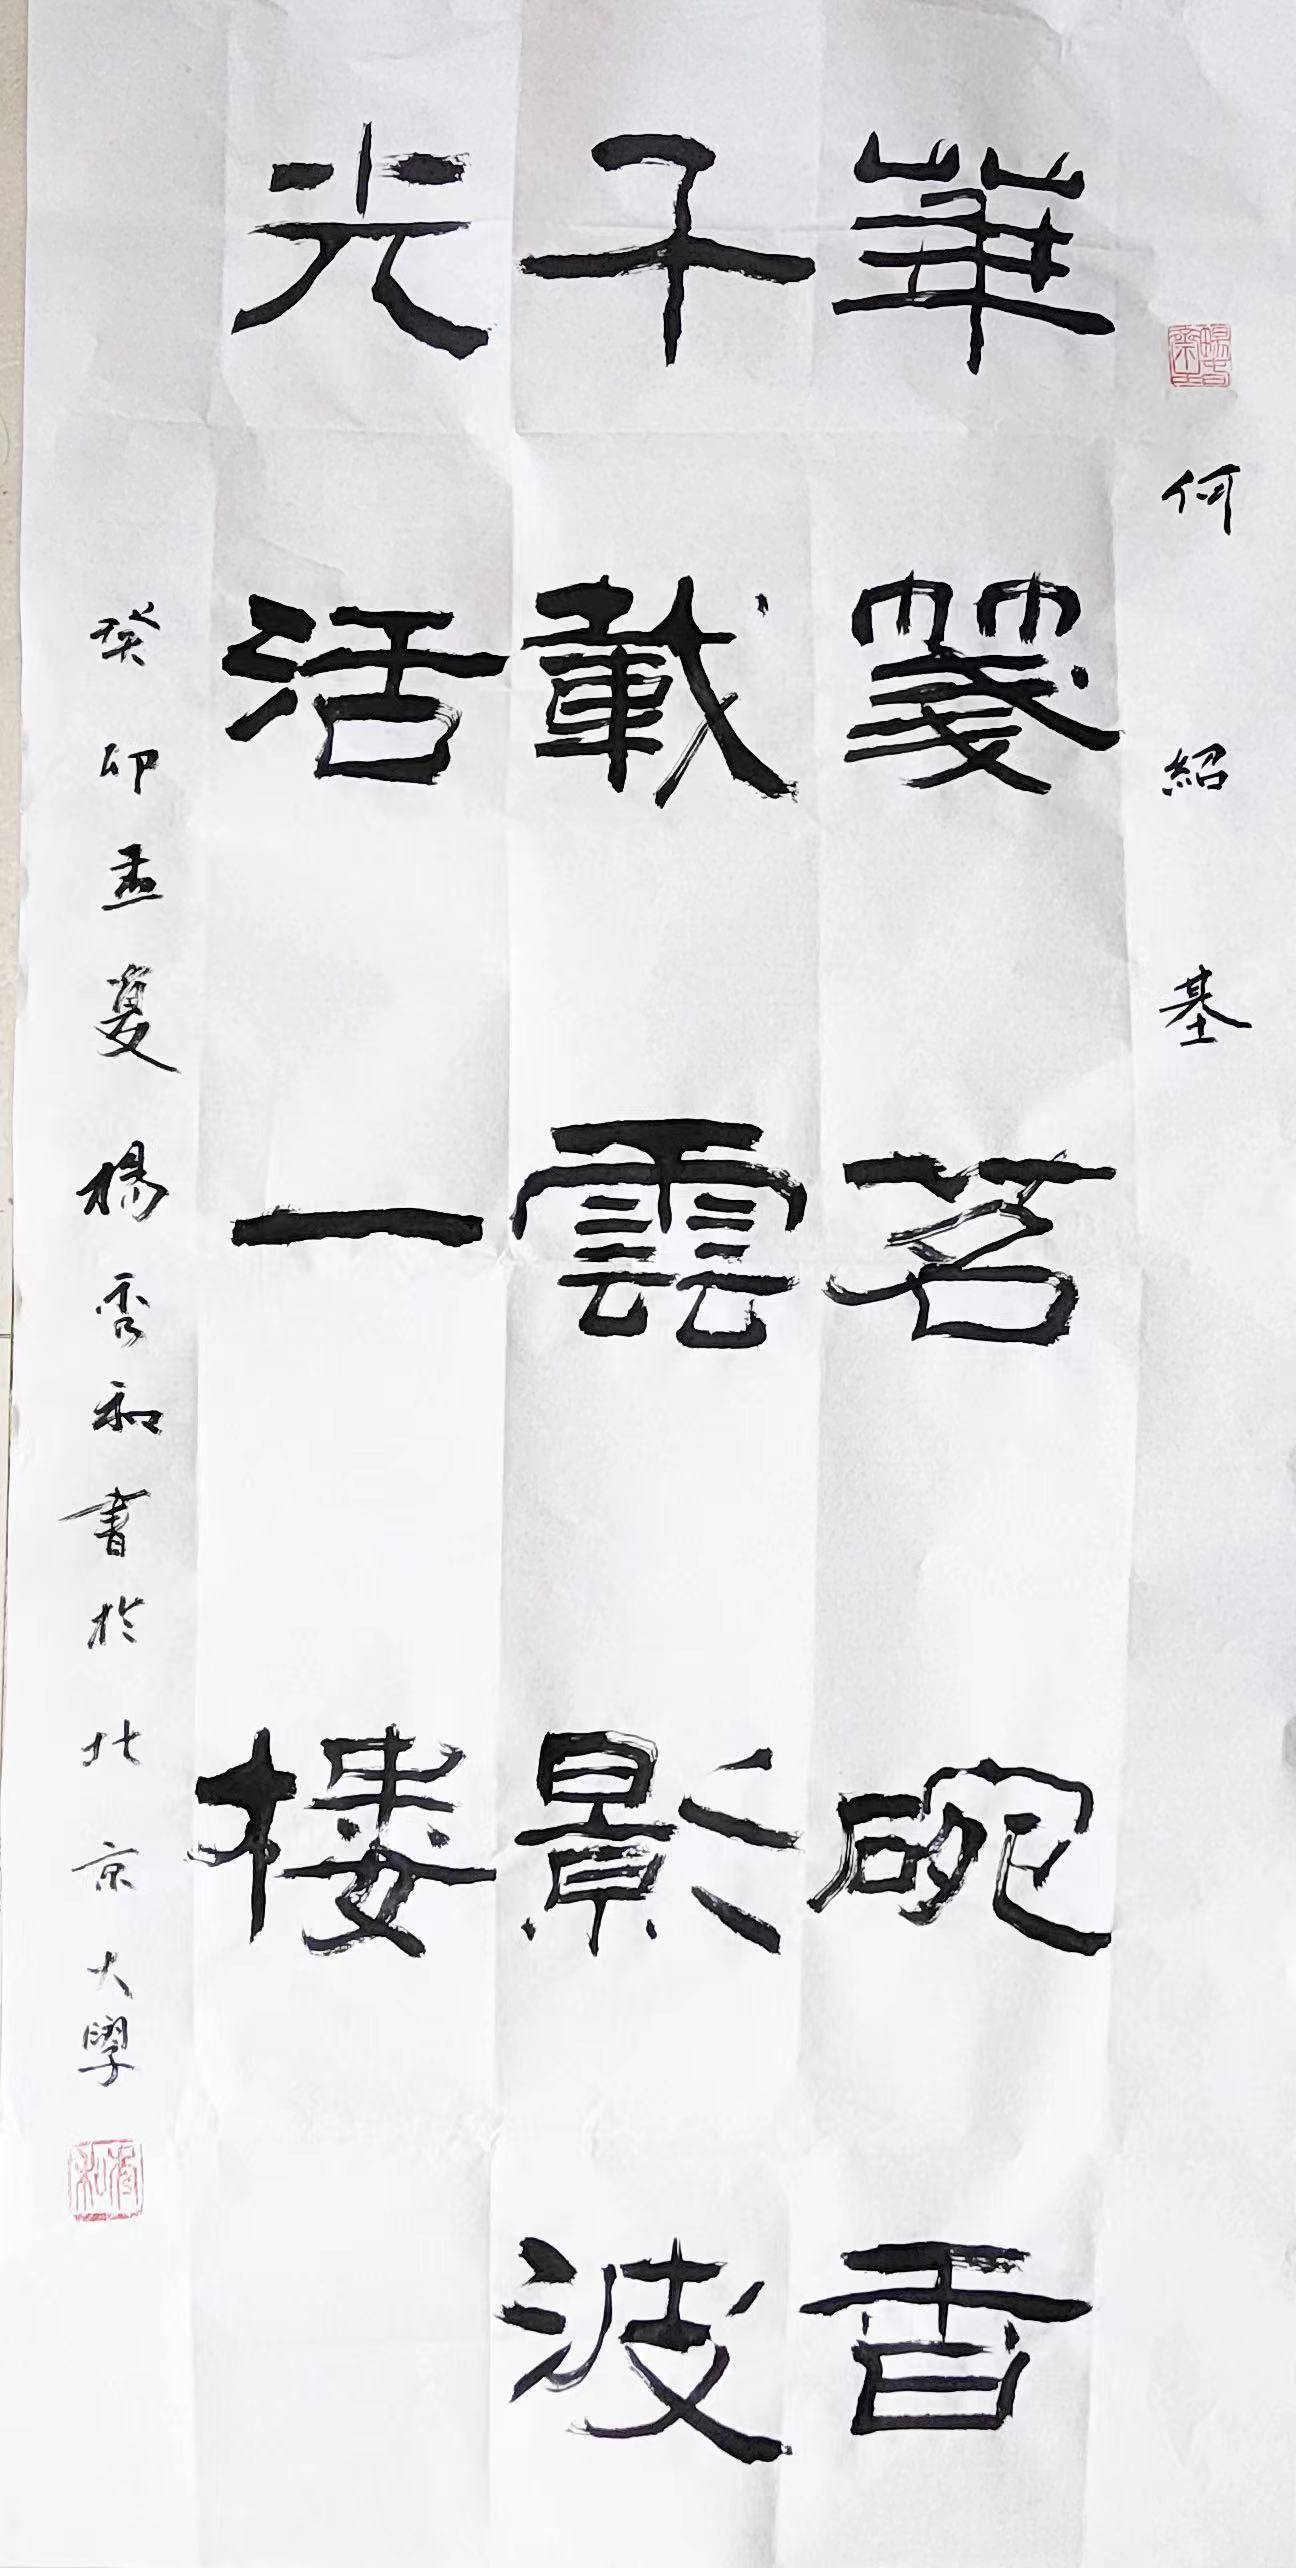 何紹基
華箋茗碗香
千載雲影波
光活一樓
癸卯孟夏楊秀和書於北京大學
秀和